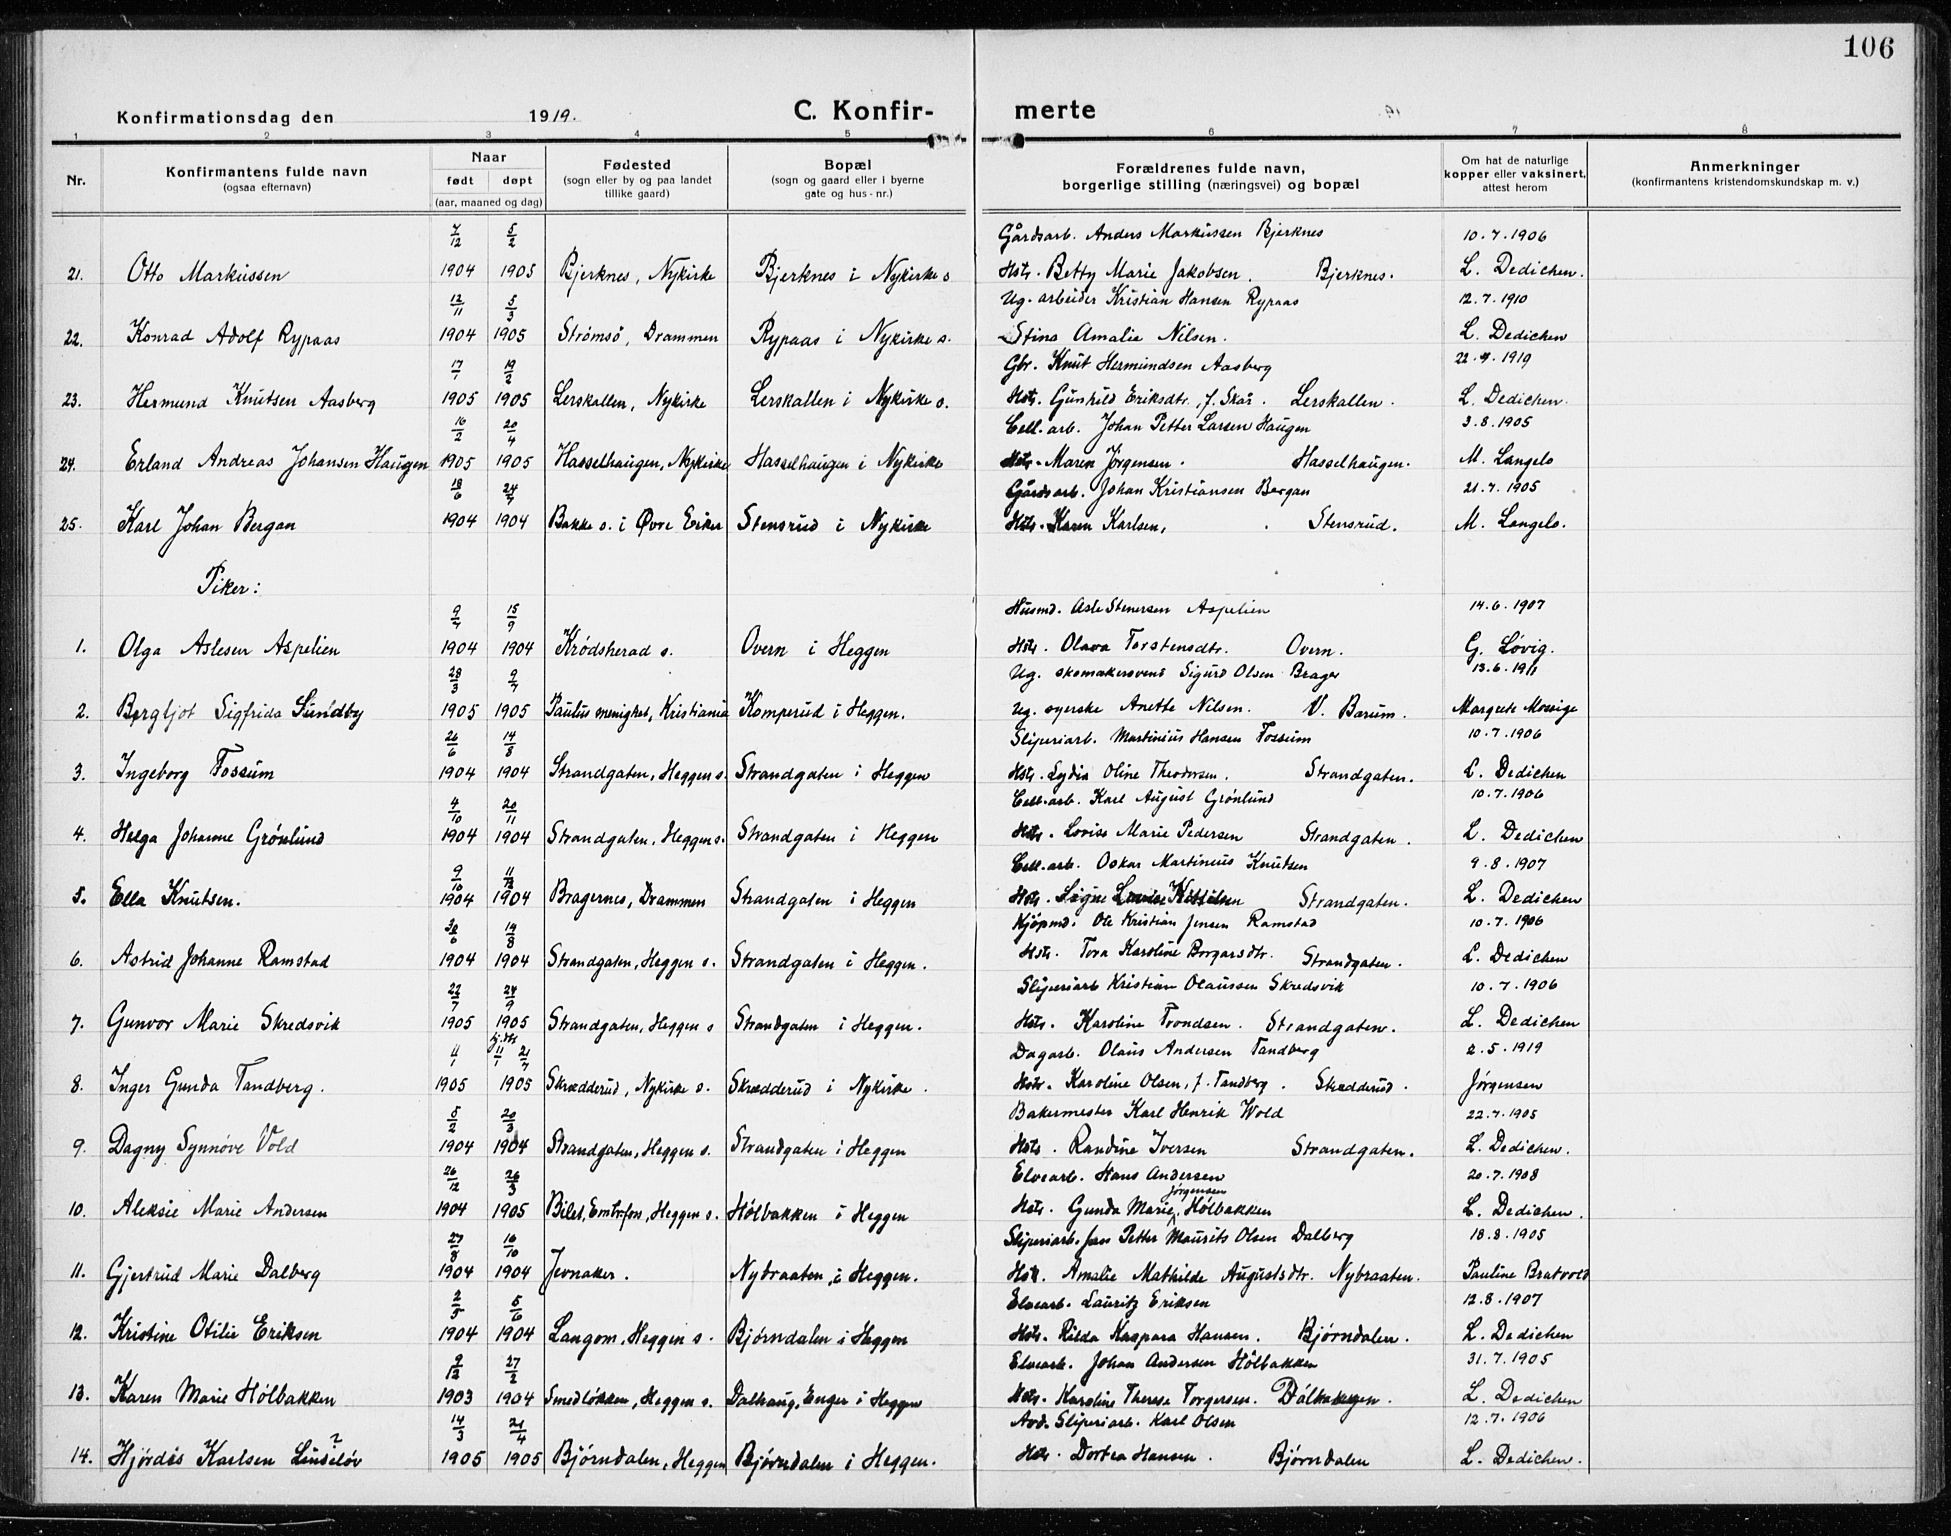 106
Konfirmationsdag den 1919. C. Konfir- merte
1 2 3 4 5 6 7 8
Nr. Konfirmantens fulde navn (ogsaa efternavn) Naar født døpt (aar, maaned og dag) Fødested (sogn eller by og paa landet tillike gaard) Bopæl (sogn og gaard eller i byerne gate og hus-nr.) Forældrenes fulde navn, borgerlige stilling (næringsvei) og bopæl Om hat de naturlige kopper eller vaksinert, attest herom Anmerkninger (konfirmantens kristendomskundskap m. v.)
7/12 5/2 Gårdsarb. Anders Markussen Bjerknes 10.7.1906
21. Otto Markussen 1904 1905 Bjerknes, Nykirke Bjerknes i Nykirke s. Hstr. Betty Marie Jakobsen. Bjerknes. L. Dedichen.
12/11 5/3 Ug. arbeider Kristian Hansen Rypaas 12.7.1910
22. Konrad Adolf Rypaas 1904 1905 Strømsø, Drammen Rypaas i Nykirke s. Stina Amalie Nilsen. L. Dedichen
17/1 19/2 Gbr. Knut Hermundsen Aasberg 22.4.1919
23. Hermund Knutsen Aasberg 1905 1905 Lerskallen, Nykirke Lerskallen i Nykirke s. Hstr. Gunhild Eriksdtr., f. Skar. Lerskallen. L. Dedichen.
16/2 20/4 Cell. arb. Johan Petter Larsen Haugen 3.8.1905
24. Erland Andreas Johansen Haugen 1905 1905 Hasselhaugen, Nykirke Hasselhaugen i Nykirke Hstr. Maren Jørgensen. Hasselhaugen. M. Langelo
18/6 24/7 Gårdsarb. Johan Kristiansen Bergan 21.7.1905
25. Karl Johan Bergan 1904 1904 Bakke s. i Øvre Eiker Stensrud i Nykirke Hstr. Karen Karlsen, Stensrud. M. Langelo.
Piker:
9/7 15/9 Husmd. Asle Stenersen Aspelien 14.6.1907
1. Olga Aslesen Aspelien 1904 1904 Krødsherad s. Overn i Heggen Hstr. Olava Torstensdtr. Overn. G. Løvig.
28/3 9/7 Ug. skomakersvend Sigurd Olsen Brager 13.6.1911
2. Bergljot Sigfrida Sundby 1905 1905 Paulus menighet, Kristiania Komperud i Heggen. Ug. syerske Anette Nilsen. V. Bærum. Margrete Mossige
26/6 14/8 Sliperiarb. Martinius Hansen Fossum 10.7.1906
3. Ingeborg Fossum 1904 1904 Strandgaten, Heggen s. Strandgaten i Heggen Hstr. Lydia Oline Theodorsen. Strandgaten. L. Dedichen
4/10 20/11 Cell. arb. Karl August Grönlund 10.7.1906
4. Helga Johanne Grönlund 1904 1904 Strandgaten, Heggen s. Strandgaten i Heggen Hstr. Lovise Marie Pedersen Strandgaten. L. Dedichen
9/10 11/12 Cell. arb. Oskar Martinius Knutsen 9.8.1907
5. Ella Knutsen. 1904 1904 Bragernes, Drammen Strandgaten i Heggen Hstr. Signe Lovise Kittilsen Strandgaten. L. Dedichen
30/6 14/8 Kjöpmd. Ole Kristian Jensen Ramstad 10.7.1906
6. Astrid Johanne Ramstad 1904 1904 Strandgaten, Heggen s. Strandgaten i Heggen. Hstr. Tora Karoline Borgarsdtr. Strandgaten. L. Dedichen
22/7 24/9 Sliperiarb Kristian Olaussen Skredsvik 10.7.1906
7. Gunvor Marie Skredsvik 1905 1905 Strandgaten, Heggen s Strandgaten i Heggen. Hstr. Karoline Trondsen. Strandgaten. L. Dedichen
4/1 11/1 21/7 Dagarb. Olaus Andersen Tandberg 2.5.1919
8. Inger Gunda Tandberg. 1905 1905 Skrædderud, Nykirke s. Skrædderud i Nykirke. Hstr. Karoline Olsen, f. Tandberg. Skrædderud. Jørgensen
5/2 20/3 Bakermester Karl Henrik Wold 22.7.1905
9. Dagny Synnøve Vold 1904 1904 Strandgaten, Heggen s. Strandgaten i Heggen Hstr. Randine Iversen Strandgaten. L. Dedichen.
26/12 26/3 Elvearb. Hans Andersen 20.7.1908
10. Aleksie Marie Andersen 1904 1905 Bilet, Embrfoss, Heggen s. Hølbakken i Heggen Hstr. Gunda Marie Jørgensen Hølbakken L. Dedichen.
27/8 16/10 Sliperiarb. Jon Petter Maurits Olsen Dalberg 18.8.1905
11. Gjertrud Marie Dalberg 1904 1904 Jevnaker. Nybraaten, i Heggen. Hstr. Amalie Mathilde Augustsdtr. Nybraaten. Pauline Bratvold
2/5 5/6 Elvearb. Lauritz Eriksen 12.8.1907
12. Kristine Otilie Eriksen 1904 1904 Langom, Heggen s. Bjørndalen i Heggen Hstr. Rilda Kaspara Hansen. Bjørndalen. L. Dedichen
9/12 27/2 Elvearb. Johan Andersen Hölbakken 31.7.1905
13. Karen Marie Hölbakken 1903 1904 Smedløkken, Heggen s. Dalhaug, Enger i Heggen Hstr. Karoline Therese Torgersen. L. Dedichen
14/3 24/4 Avd. Sliperiarb. Karl Olsen 12.7.1906
14. Hjördis Karlsen Lindeløv ? 1905 1905 Bjørndalen, Heggen Bjørndalen i Heggen. Hstr. Dortea Hansen. Bjørndalen L. Dedichen.